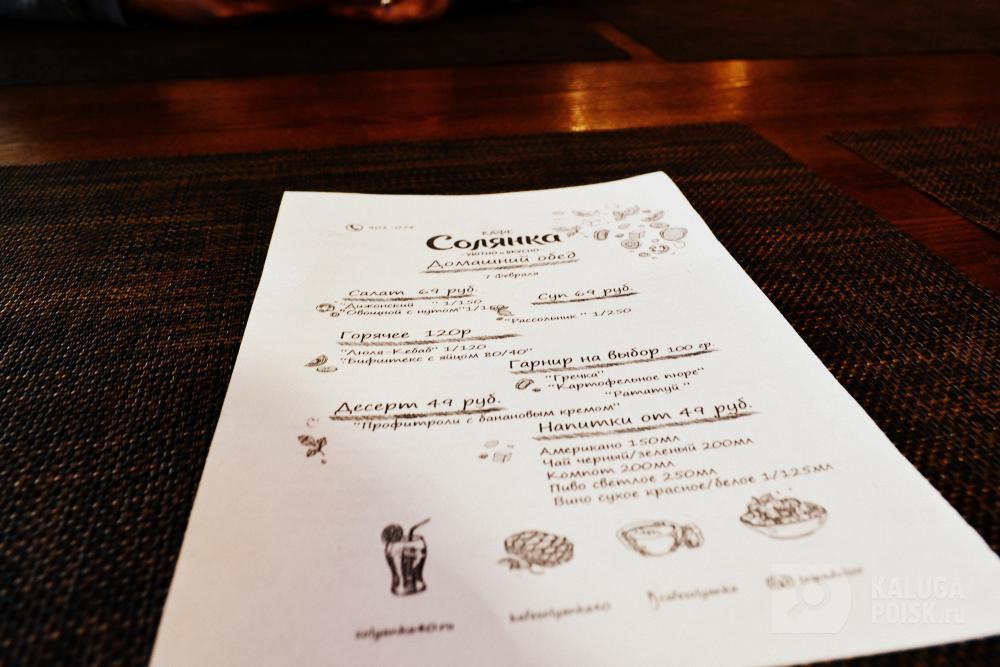 КАФЕ
Солянка
УЮТНО и ВКУСНО
Домашний обед
7 Февраля
Салат 69 руб.
"Дижонский " 1/150
"Овощной с нутом"1/150
Суп 69 руб.
"Рассольник " 1/250
Горячее 120р
"Люля-Кебаб" 1/120
"Бифштекс с яйцом 80/40"
Гарнир на выбор 100 гр.
"Гречка"
"Картофельное пюре"
"Рататуй "
Десерт 49 руб.
"Профитроли с банановым кремом"
Напитки от 49 руб.
Американо 150мл
Чай черный/зеленый 200мл
Компот 200мл
Пиво светлое 250мл
Вино сухое красное/белое 1/125мл
solyanka40.ru
kafesolyanka40
KALUGA
POISK.ru